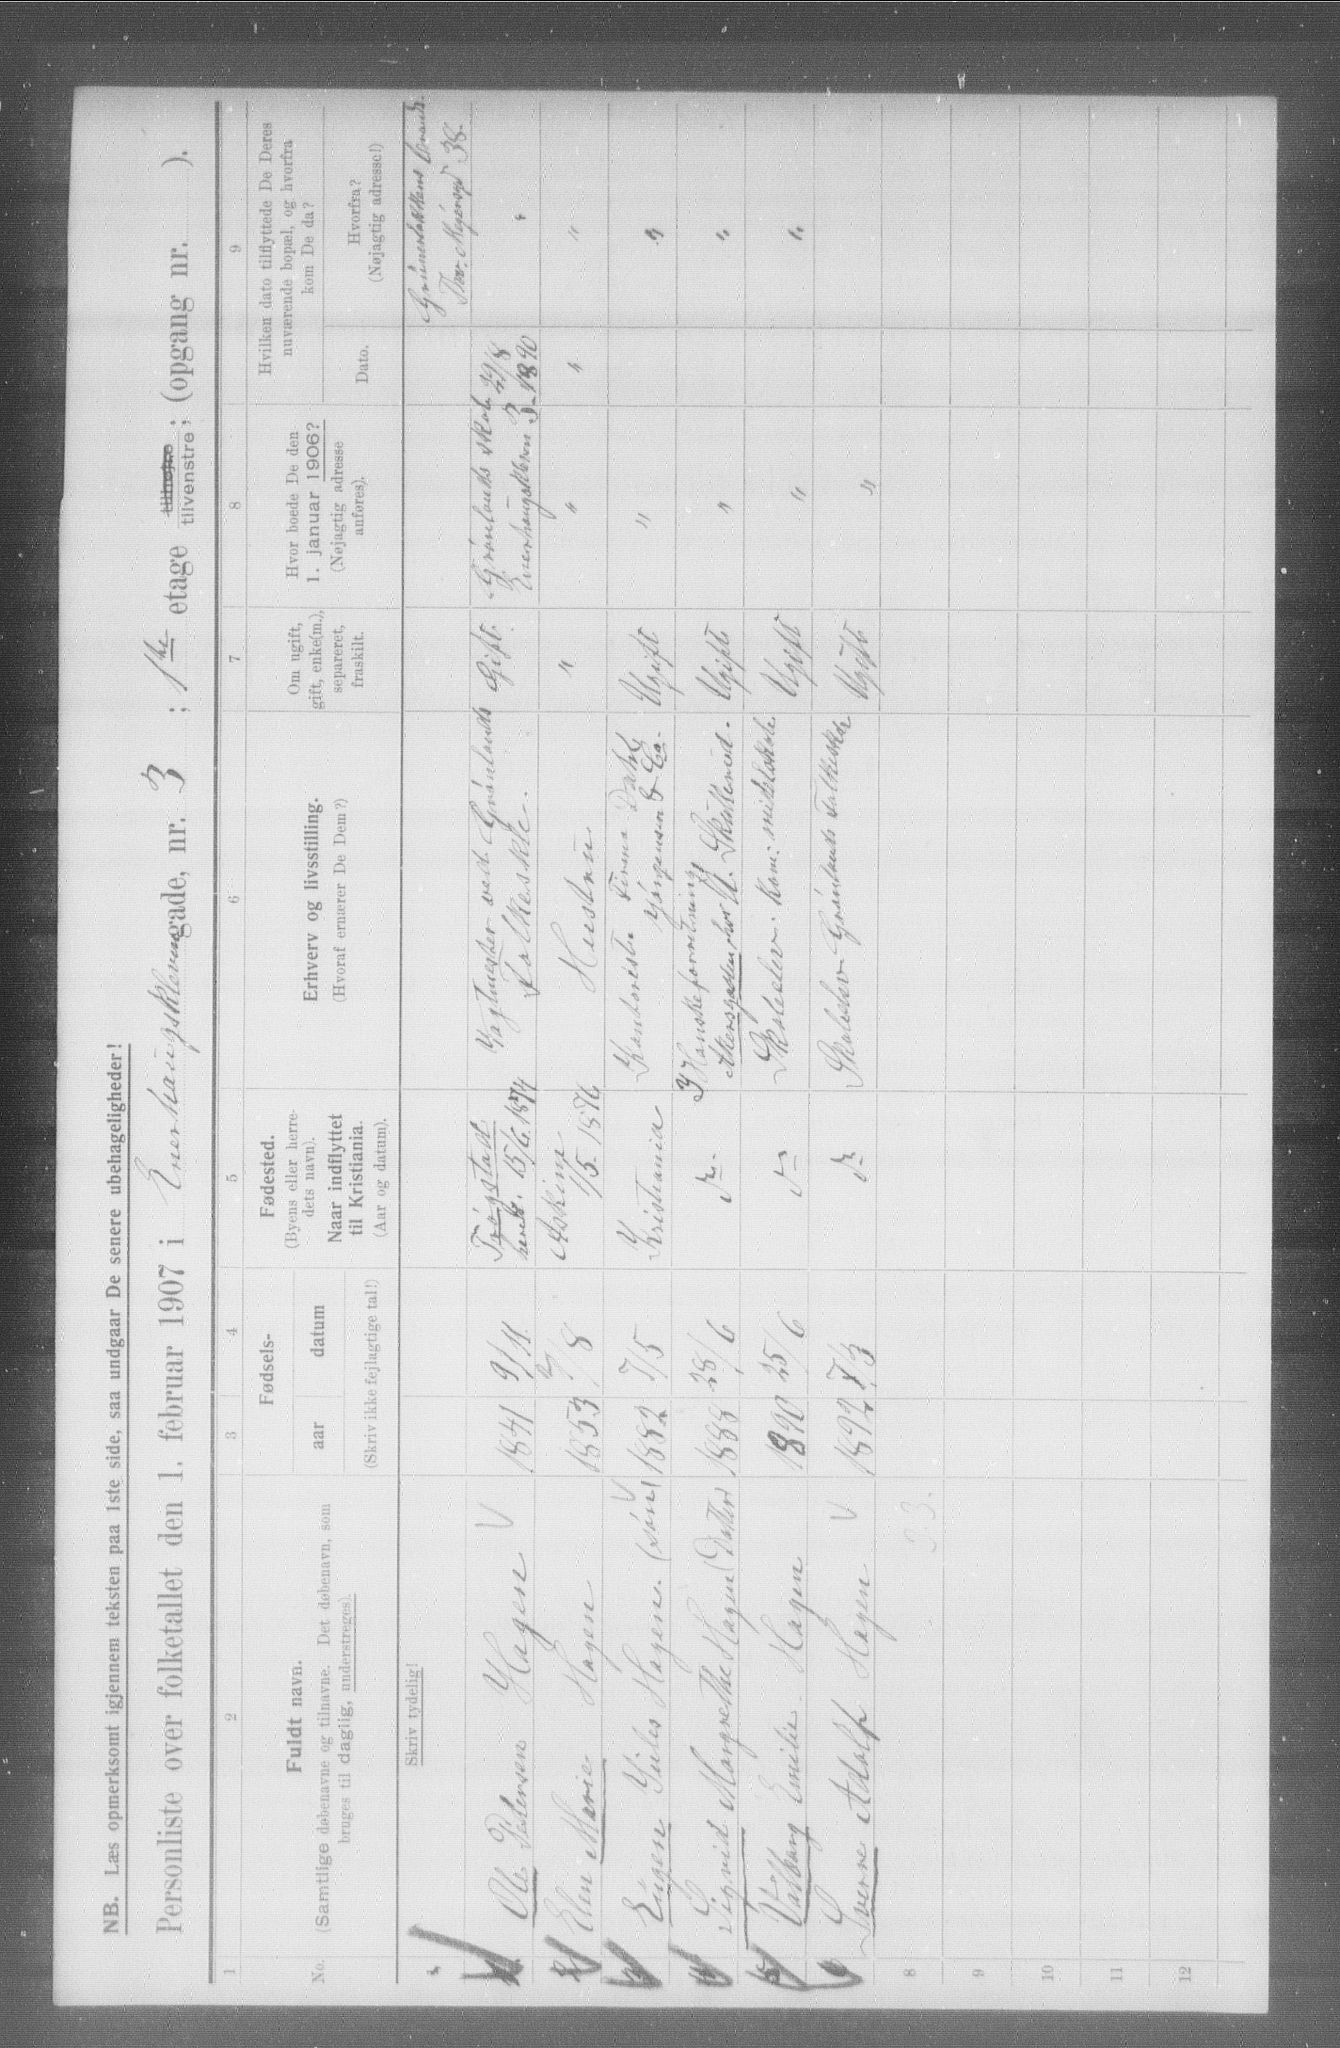 NB. Læs opmerksomt igjennem teksten paa 1ste side, saa undgaar De senere ubehageligheder!
Personliste over folketallet den 1. februar 1907 i Enerhaugskleven gade, nr. 3 ; 1ste etage tilhøjre tilvenstre ; (opgang nr. ).
1 2 3 4 5 6 7 8 9
No.
Fuldt navn.
(Samtlige døbenavne og tilnavne. Det døbenavn, som
bruges til daglig, understreges).
Fødsels-
aar datum
(Skriv ikke fejlagtige tal!)
Fødested.
(Byens eller herre-
dets navn).
Naar indflyttet
til Kristiania.
(Aar og datum).
Erhverv og livsstilling.
(Hvoraf ernærer De Dem?)
Om ugift,
gift, enke(m.),
separeret,
fraskilt.
Hvor boede De den
1. januar 1906?
(Nøjagtig adresse
anføres).
Hvilken dato tilflyttede De Deres
nuværende bopæl, og hvorfra
kom De da?
Dato.
Hvorfra?
(Nøjagtig adresse!)
Skriv tydelig!
Grünerløkkens
Thv. Meyersgd 38.
1 Ole Pedersen Hagen 1841 9/11 Trøgstad Vagtmester ved Grønlands Gift. Grønlands skole 29/8 "
hered. 15/6. 1874 Folkeskle. Enerhaugskleven 3. 1890
2 Elen Marie Hagen 1853 /8 Askim Hustru " " " "
1/5. 1876
3 Eugen Juls Hagen. (søn) 1882 7/5 Kristiania Kontorist. Firma Dahl Ugift " "
Jørgensen & Co.
4 Sigrid Margrethe Hagen (Datter) 1888 28/6 do. I Hanskeforretning Ugift " "
Akersgaden hos H. Skatterud.
5 Valborg Emilie Hagen 1890 25/6 do Skoleelev. Kom: middelskole Ugift " "
6 Sverre Adolf Hagen 1892 7/3 do Skoleelev Grønlands Folkeskole Ugift "
3.3.
8
9
10
11
12